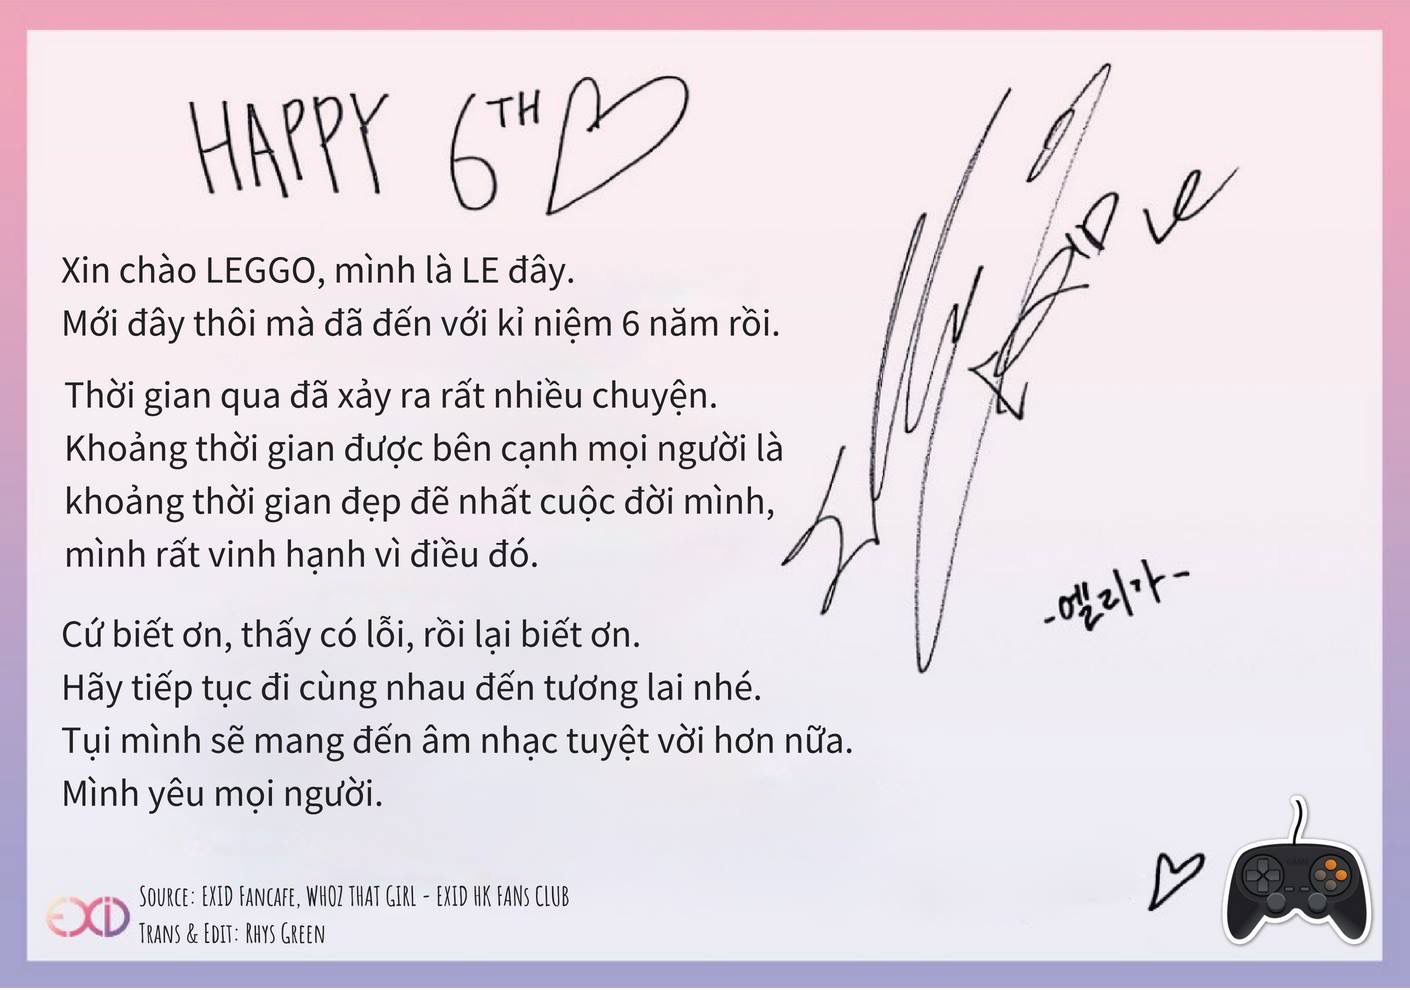 HAPPY 6TH
Xin chào LEGGO, mình là LE đây.
Mới đây thôi mà đã đến với kỉ niệm 6 năm rồi.
Thời gian qua đã xảy ra rất nhiều chuyện.
Khoảng thời gian được bên cạnh mọi người là
khoảng thời gian đẹp đẽ nhất cuộc đời mình,
mình rất vinh hạnh vì điều đó.
Cứ biết ơn, thấy có lỗi, rồi lại biết ơn.
Hãy tiếp tục đi cùng nhau đến tương lai nhé.
Tụi mình sẽ mang đến âm nhạc tuyệt vời hơn nữa.
Mình yêu mọi người.
EXID LE
-엘리가-
EXID
Source: EXID Fancafe, WHOZ THAT GIRL - EXID HK FANs CLUB
Trans & Edit: Rhys Green